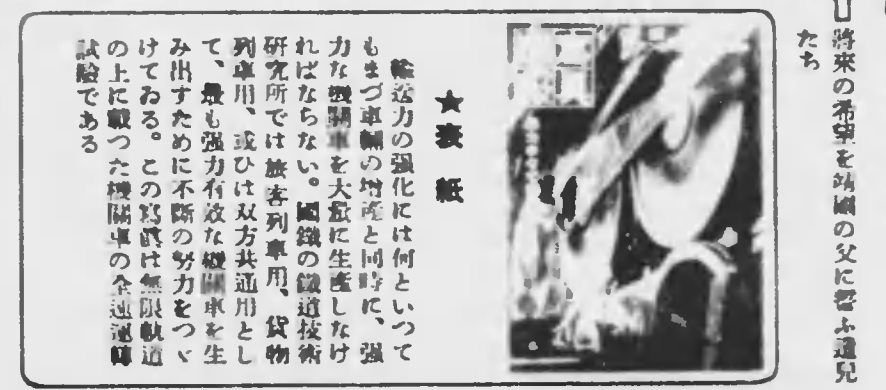 將來の希望を靖國の父に誓ふ遺兒
たち
★表紙
輸送力の强化には何といつて
もまづ車輛の增產と同時に、强
力な機關車を大量に生產しなけ
ればならない。國鐵の鐵道技術
研究所では旅客列車用、貨物
列車用、或ひは双方共通用とし
て、最も强力有效な機關車を生
み出すために不斷の努力をつゞ
けてゐる。この寫眞は無限軌道
の上に載つた機關車の全速運轉
試驗である